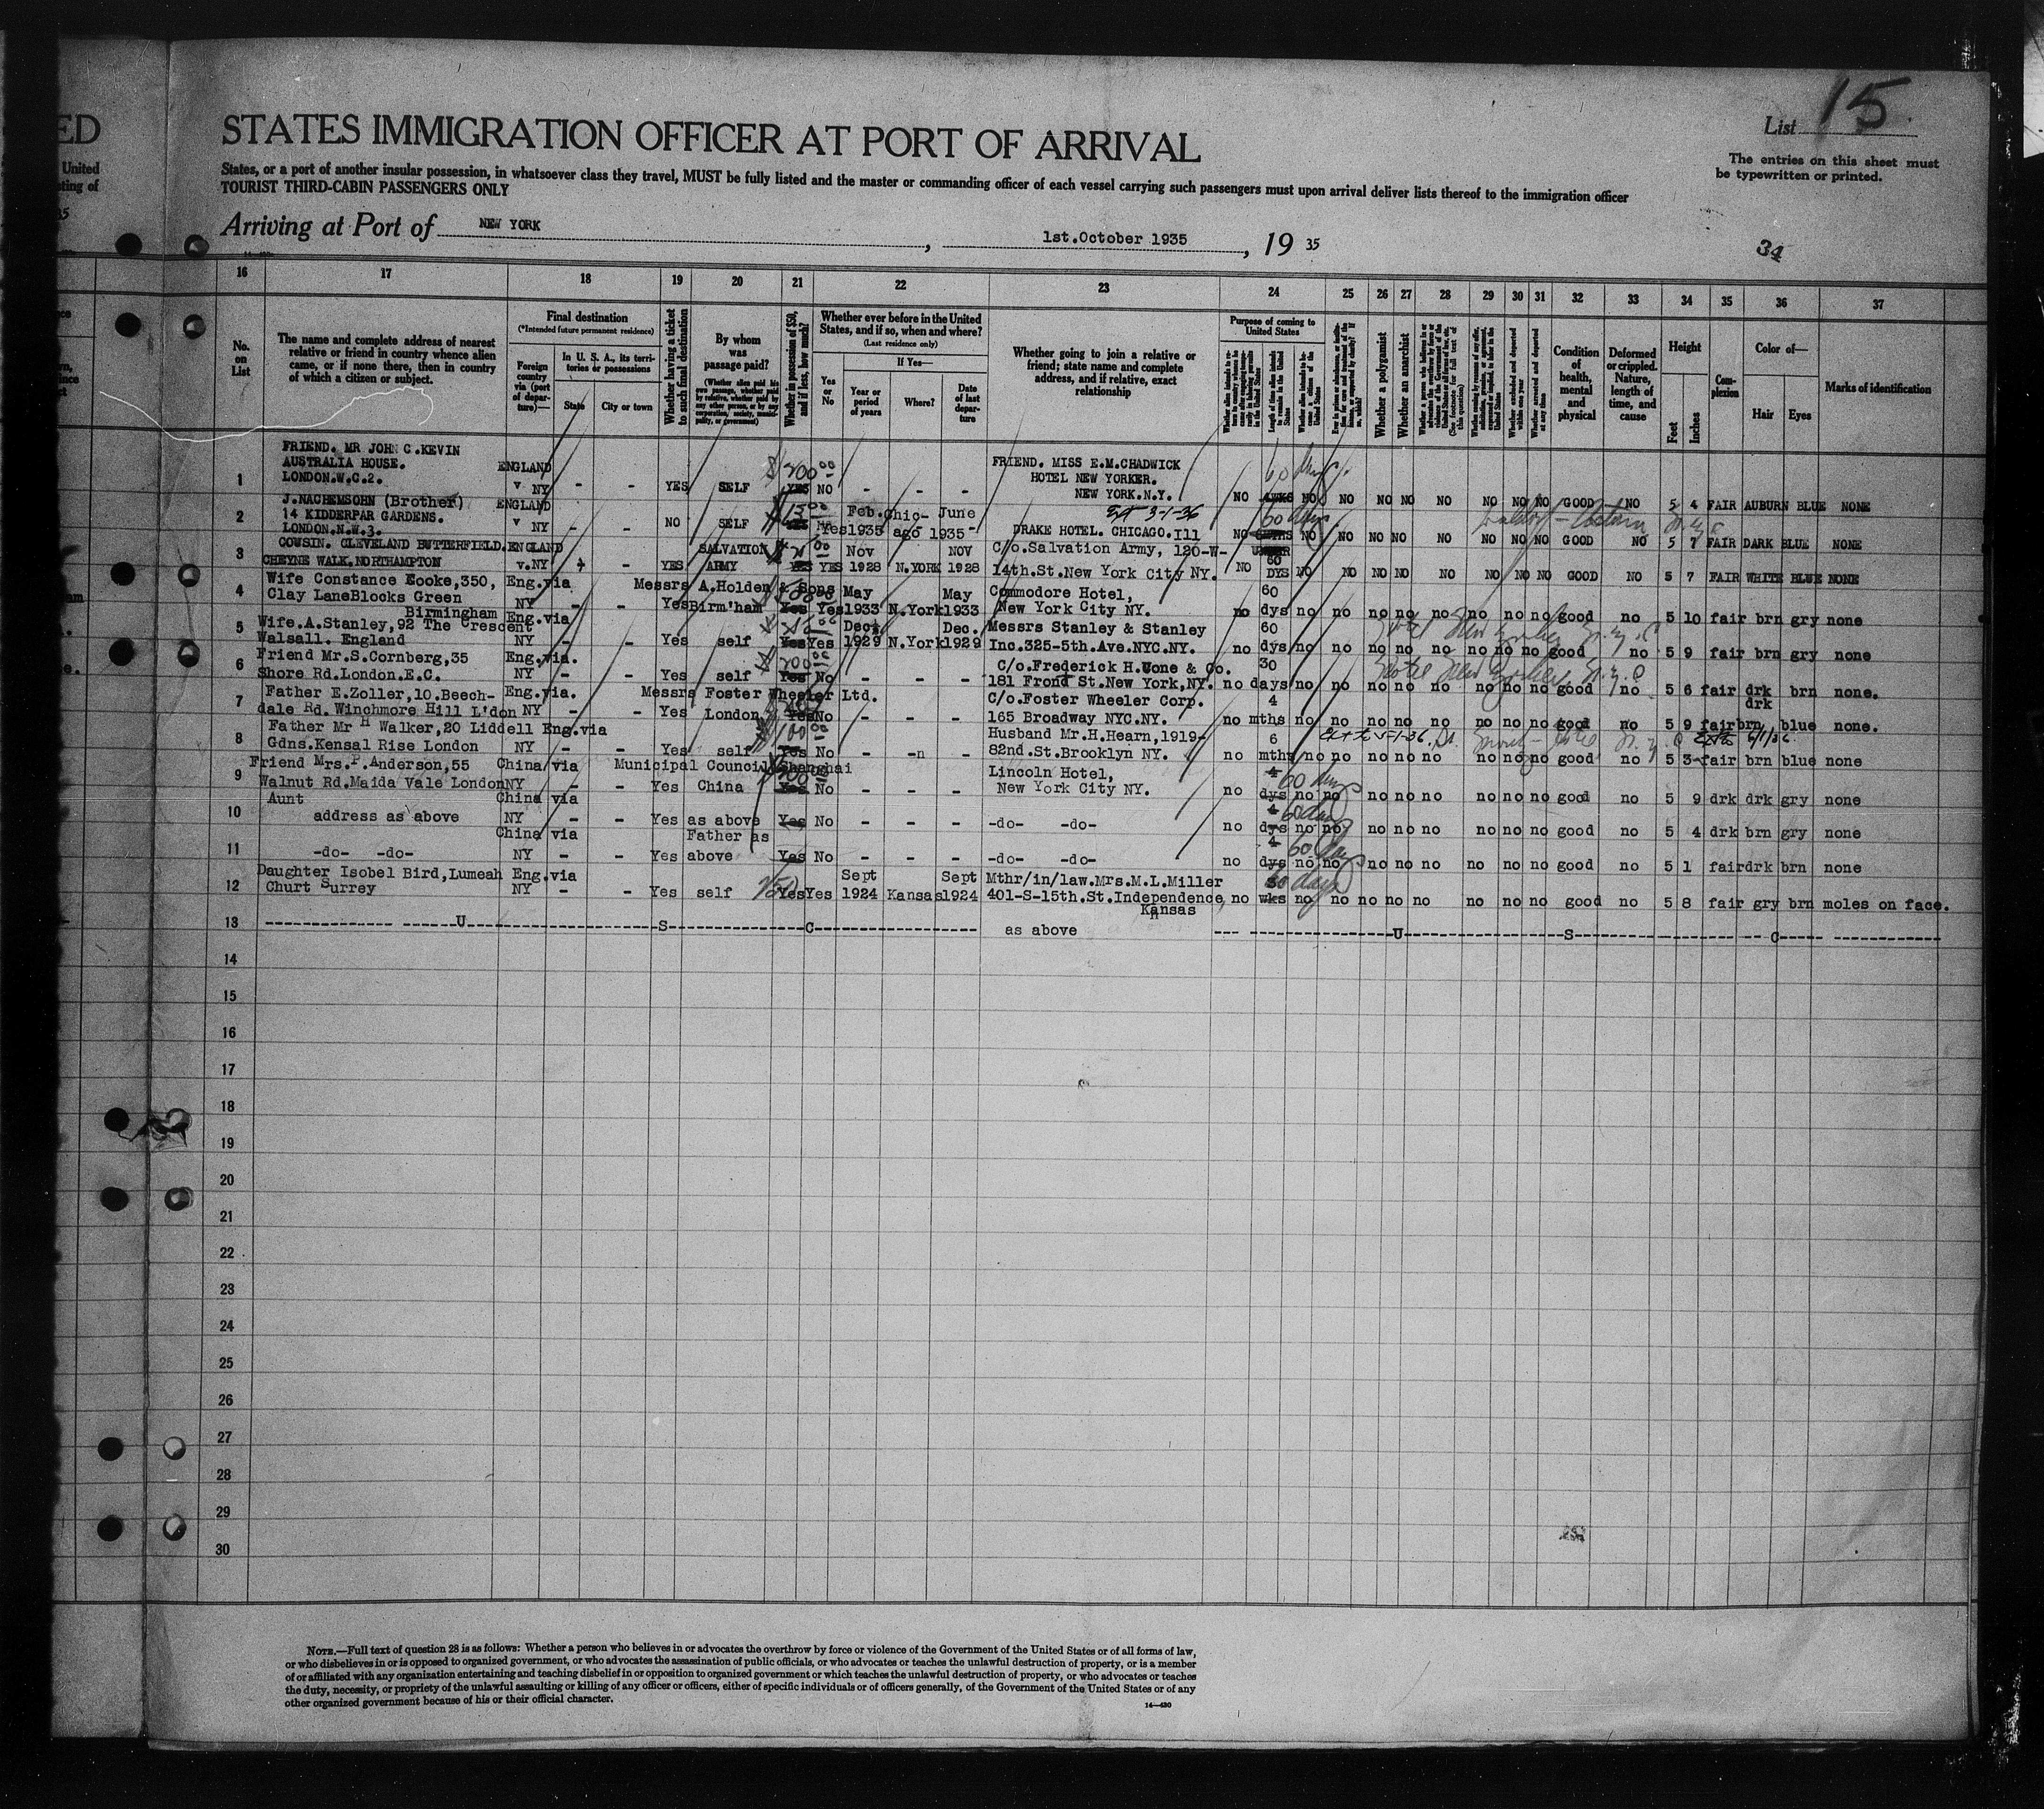 ED
United
sting of
35
List 15.
STATES IMMIGRATION OFFICER AT PORT OF ARRIVAL
The entries on this sheet must
be typewritten or printed.
States, or a port of another insular possession, in whatsoever class they travel, MUST be fully listed and the master or commanding officer of each vessel carrying such passengers must upon arrival deliver lists thereof to the immigration officer
TOURIST THIRD-CABIN PASSENGERS ONLY
Arriving at Port of NEW YORK, 1st.October 1935, 19 35
34
16 17 18 19 20 21 22 23 24 25 26 27 28 29 30 31 32 33 34 35 36 37
No. on List
The name and complete address of nearest
relative or friend in country whence alien
came, or if none there, then in country
of which a citizen or subject.
Final destination
(*Intended future permanent residence)
Foreign country via (port of departure)—
In U. S. A., its territories or possessions
State
City or town
Whether having a ticket to such final destination
By whom was passage paid?
(Whether alien paid his own passage, whether paid by relative, whether paid by any other person, or by any corporation, society, municipality, or government)
Whether in possession of $50, and if less, how much?
Whether ever before in the United
States, and if so, when and where?
(Last residence only)
Yes or No
If Yes—
Year or period of years
Where?
Date of last departure
Whether going to join a relative or
friend; state name and complete
address, and if relative, exact
relationship
Purpose of coming to
United States
Length of time alien intends to remain in the United States
Whether alien intends to become a citizen of the United States
Whether a polygamist
Whether an anarchist
Condition of health, mental and physical
Deformed or crippled. Nature, length of time, and cause
Height
Feet
Inches
Complexion
Color of—
Hair
Eyes
Marks of identification
FRIEND. MR JOHN C.KEVIN
AUSTRALIA HOUSE. ENGLAND FRIEND. MISS E.M.CHADWICK 60 days
1 LONDON.W.C.2. v NY - - YES SELF $200.00 YES NO - - - HOTEL NEW YORKER.
NEW YORK.N.Y. NO 4WKS NO NO NO NO NO NO NO NO GOOD NO 5 4 FAIR AUBURN BLUE NONE
J.NACHEMSOHN (Brother) ENGLAND Feb. Chic- June Ext 3-1-36
2 14 KIDDERPAR GARDENS. v NY - - NO SELF Yes 1935 ago 1935- 60 days
LONDON.N.W.3. DRAKE HOTEL. CHICAGO.Ill NO NO NO NO NO NO NO NO NO GOOD NO 5 7 FAIR DARK BLUE NONE
COUSIN. CLEVELAND BUTTERFIELD. ENGLAND SALVATION Nov NOV C/o.Salvation Army, 120-W-
3 CHEYNE WALK.NORTHAMPTON v.NY - YES ARMY YES YES 1928 N.YORK 1928 14th.St.New York City NY. NO 60 DYS NO NO NO NO NO NO NO NO GOOD NO 5 7 FAIR WHITE BLUE NONE
Wife Constance Cooke,350, Eng.via Messrs A.Holden & Sons May May Commodore Hotel, 60
4 Clay LaneBlocks Green NY - - Yes Birm'ham Yes Yes 1933 N.York 1933 New York City NY. no dys no no no no no no no no good no 5 10 fair brn gry none
Birmingham
Wife.A.Stanley,92 The Crescent Eng.via Dec. Dec. Messrs Stanley & Stanley 60
5 Walsall. England NY - - Yes self Yes Yes 1929 N.York 1929 Inc.325-5th.Ave.NYC.NY. no dys no no no no no no no no good no 5 9 fair brn gry none
Hotel New Yorker N.Y.C
Friend Mr.S.Cornberg,35 Eng.via. 200.00 c/o.Frederick H.Cone & Co. 30
6 Shore Rd.London.E.C. NY - - Yes self Yes No - - - 181 Frond St.New York,NY. no days no no no no no no no no good no 5 6 fair drk brn none.
Hotel New Yorker N.Y.C
Father E.Zoller,10.Beech- Eng.via. Messrs Foster Wheeler Ltd. C/o.Foster Wheeler Corp. 4 drk
7 dale Rd. Winchmore Hill L'don NY - - Yes London Yes No - - - 165 Broadway NYC.NY. no mths no no no no no no no no good no 5 9 fair brn blue none.
Father Mr H Walker,20 Liddell Eng.via $100.00 Husband Mr.H.Hearn,1919- 6
8 Gdns.Kensal Rise London NY - - Yes self Yes No - -n - 82nd.St.Brooklyn NY. no mths no no no no no no no no good no 5 3 fair brn blue none
Friend Mrs.P.Anderson,55 China via Municipal Council Shanghai Lincoln Hotel, 4 60 days
9 Walnut Rd.Maida Vale London NY - - Yes China Yes No - - - New York City NY. no dys no no no no no no no no good no 5 9 drk drk gry none
Aunt China via 4 60 days
10 address as above NY - - Yes as above Yes No - - - -do- -do- no dys no no no no no no no no good no 5 4 drk brn gry none
China via Father as 4 60 days
11 -do- -do- NY - - Yes above Yes No - - - -do- -do- no dys no no no no no no no no good no 5 1 fair drk brn none
Daughter Isobel Bird,Lumeah Eng.via Sept Sept Mthr/in/law.Mrs.M.L.Miller 60 days
12 Churt Surrey NY - - Yes self Yes Yes 1924 Kansas 1924 401-S-15th.St.Independence, no wks no no no no no no no no good no 5 8 fair gry brn moles on face.
Kansas
13 U S C as above U S C
14
15
16
17
18
19
20
21
22
23
24
25
26
27
28
29
30
NOTE.—Full text of question 28 is as follows: Whether a person who believes in or advocates the overthrow by force or violence of the Government of the United States or of all forms of law,
or who disbelieves in or is opposed to organized government, or who advocates the assassination of public officials, or who advocates or teaches the unlawful destruction of property, or is a member
of or affiliated with any organization entertaining and teaching disbelief in or opposition to organized government or which teaches the unlawful destruction of property, or who advocates or teaches
the duty, necessity, or propriety of the unlawful assaulting or killing of any officer or officers, either of specific individuals or of officers generally, of the Government of the United States or of any
other organized government because of his or their official character.
14—430